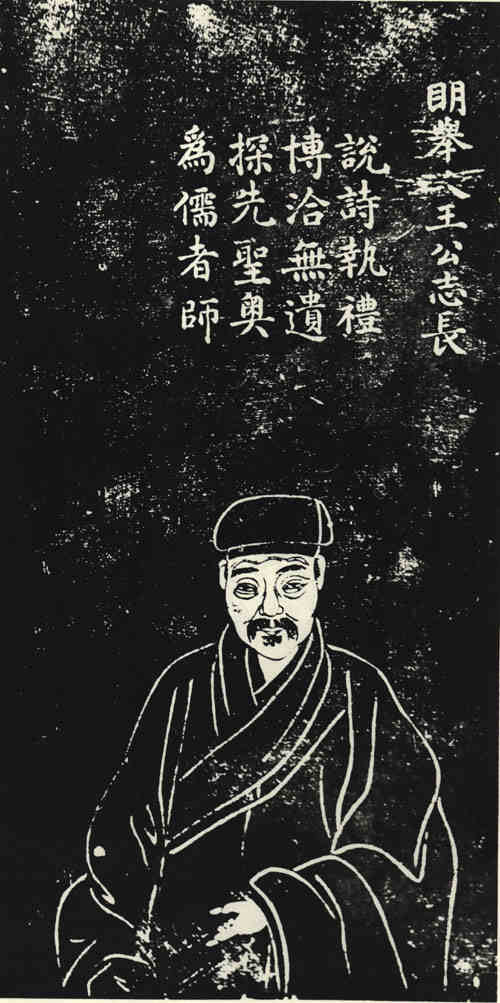 明舉人王公志長
說詩執禮
博洽無遺
探先聖奧
為儒者師